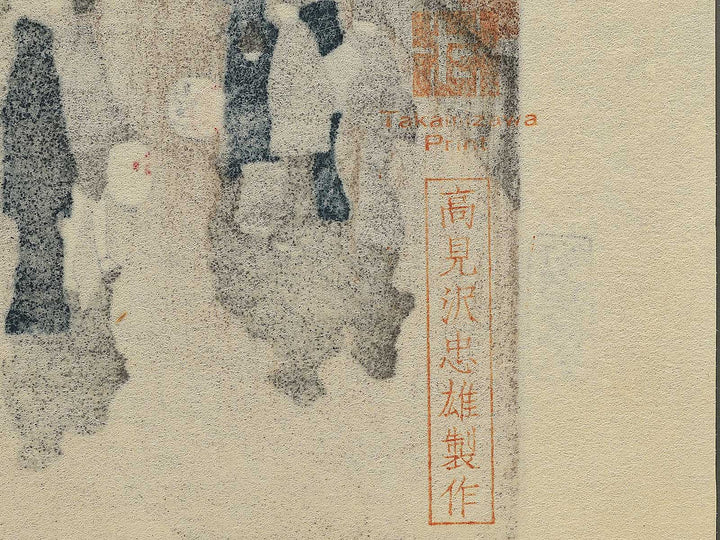 Takamizawa
Print
高見沢忠雄製作